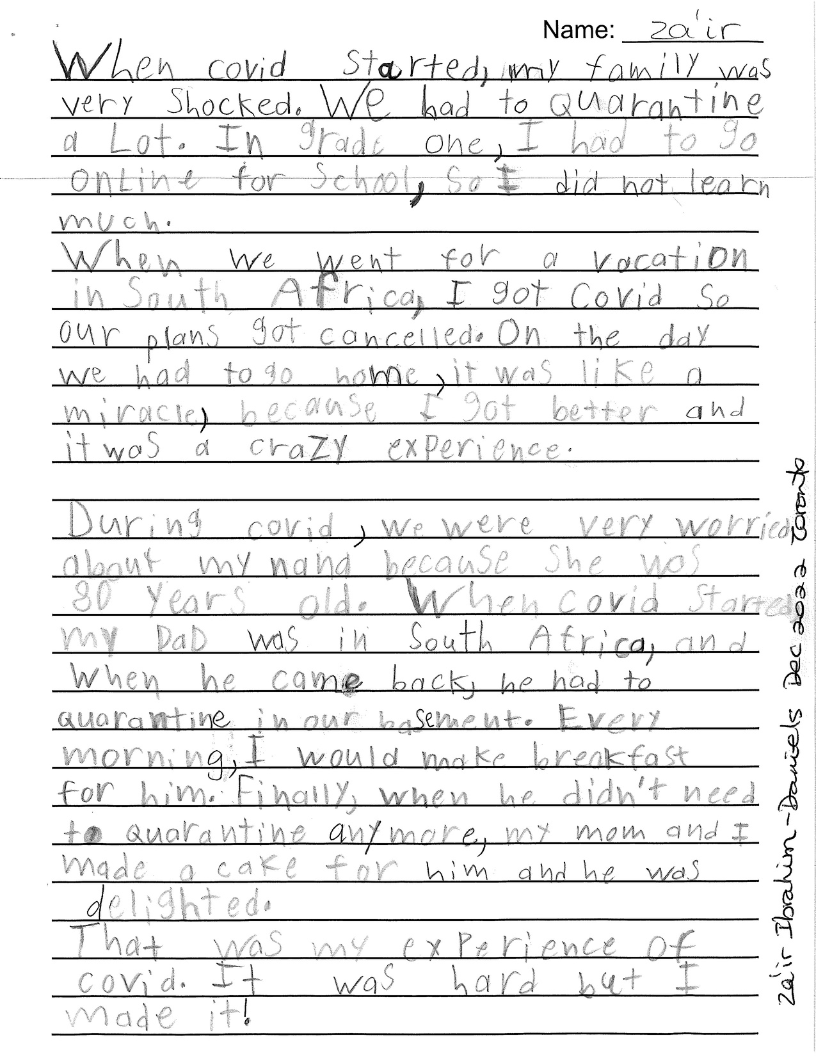 Name: Za'ir
When covid started, my family was
very Shocked. We had to quarantine
a Lot. In grade one, I had to go
onLine for School, So I did not learn
much.
When we went for a vacation
in South Africa, I got Covid So
our plans got cancelled. On the day
we had to go home, it was like a
miracle, because I got better and
it was a crazy experience.
During covid, we were very worried
about my nana because She was
80 years old. When covid Started,
my DaD was in South Africa, and
When he came back, he had to
quarantine in our basement. Every
morning, I would make breakfast
for him. Finally, when he didn't need
to quarantine anymore, my mom and I
made a cake for him and he was
delighted.
That was my experience of
covid. It was hard but I
made it!
Za'ir Ibrahim-Daniels Dec 2022 Toronto